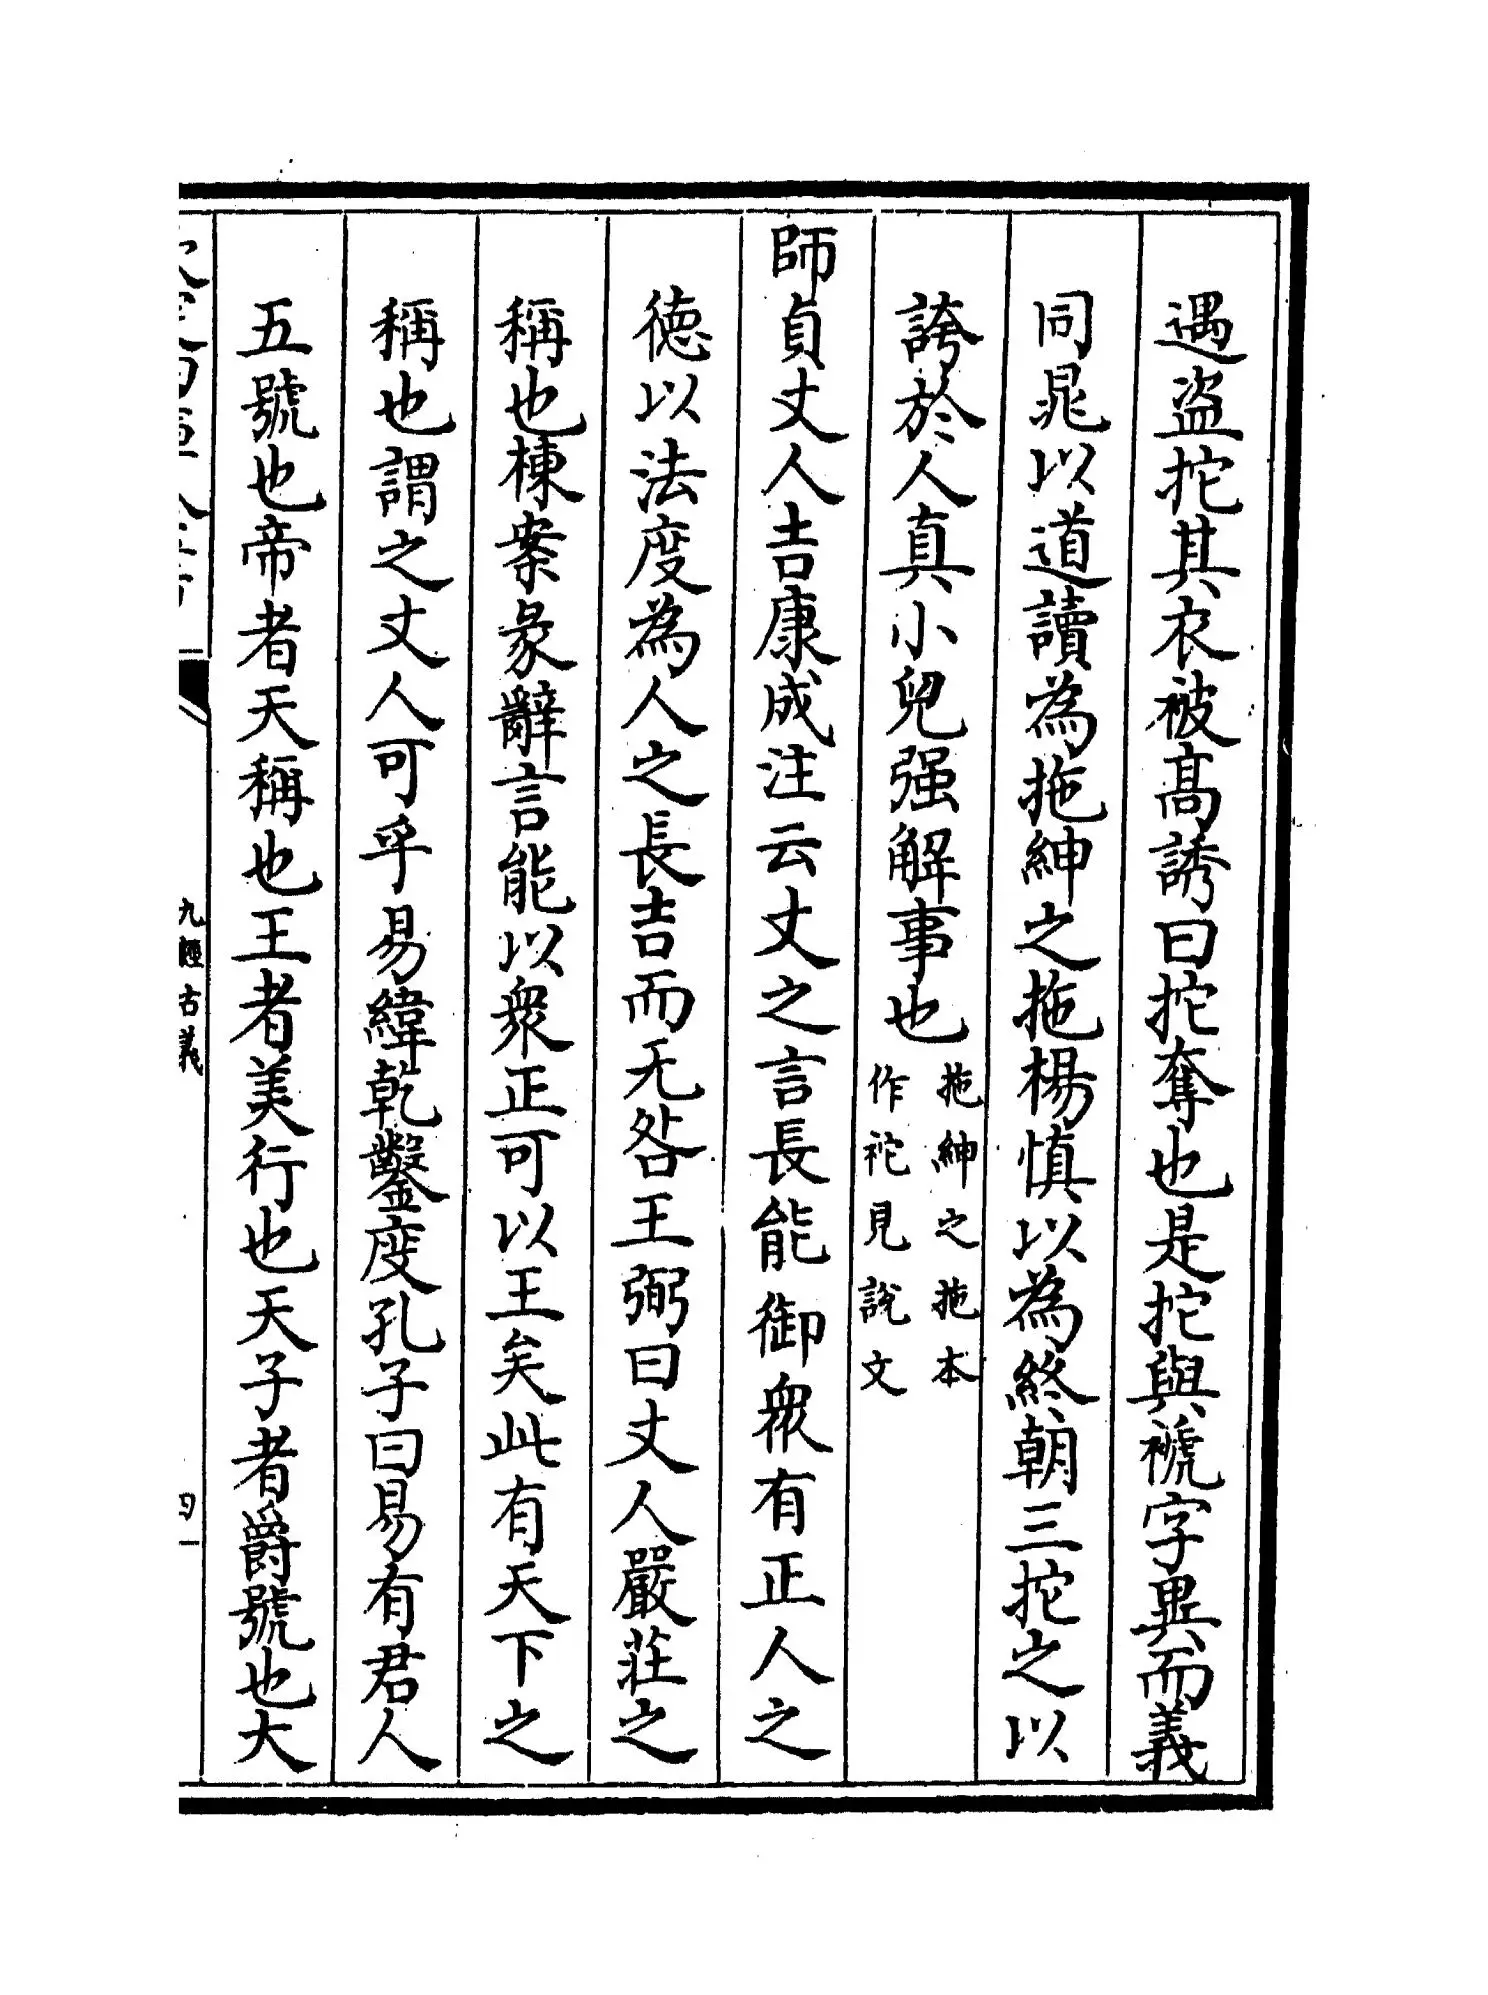 遇盗拕其衣被髙誘曰拕奪也是拕與褫字異而義
同晁以道讀為拖紳之拖楊慎以為終朝三拕之以
誇於人真小兒强解事也
拖紳之拖本
作袉見說文
師貞丈人吉康成注云丈之言長能御衆有正人之
徳以法度為人之長吉而无咎王弼曰丈人嚴莊之
稱也棟案彖辭言能以衆正可以王矣此有天下之
稱也謂之丈人可乎易緯乾鑿度孔子曰易有君人
五號也帝者天稱也王者美行也天子者爵號也大
九經古義
四